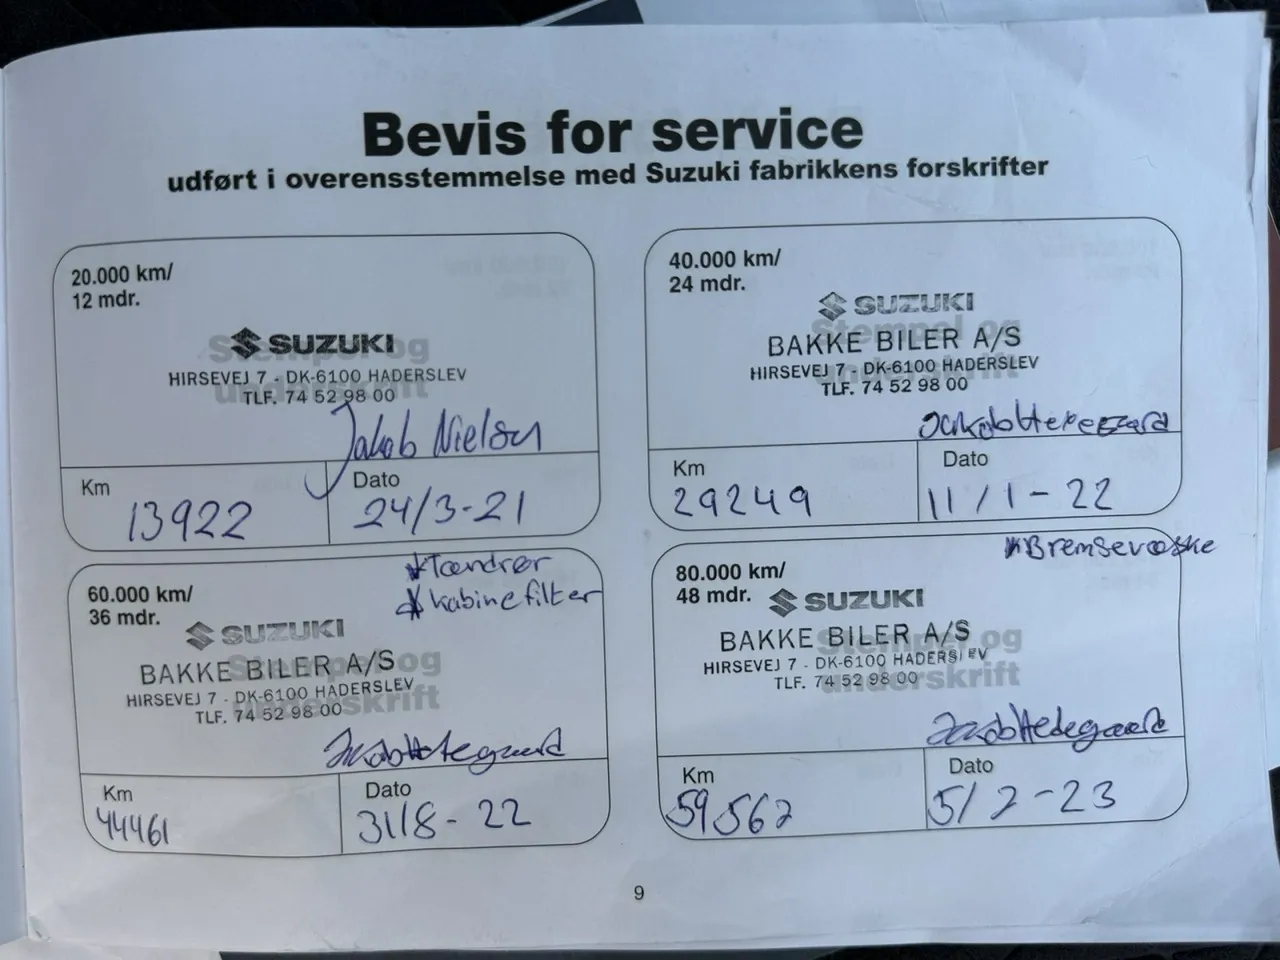 Bevis for service
udført i overensstemmelse med Suzuki fabrikkens forskrifter
20.000 km/
12 mdr.
SUZUKI
Stempel og
underskrift
HIRSEVEJ 7 - DK-6100 HADERSLEV
TLF. 74 52 98 00
Jakob Nielsen
Km
13922
Dato
24/3-21
40.000 km/
24 mdr.
SUZUKI
Stempel og
underskrift
BAKKE BILER A/S
HIRSEVEJ 7 - DK-6100 HADERSLEV
TLF. 74 52 98 00
Km
29249
Dato
11/1-22
60.000 km/
36 mdr.
*Tændrør
*kabinefilter
SUZUKI
Stempel og
underskrift
BAKKE BILER A/S
HIRSEVEJ 7 - DK-6100 HADERSLEV
TLF. 74 52 98 00
Km
44461
Dato
31/8-22
80.000 km/
48 mdr.
*Bremsevæske
SUZUKI
Stempel og
underskrift
BAKKE BILER A/S
HIRSEVEJ 7 - DK-6100 HADERSLEV
TLF. 74 52 98 00
Jacob Hedegaard
Km
59562
Dato
5/2-23
9